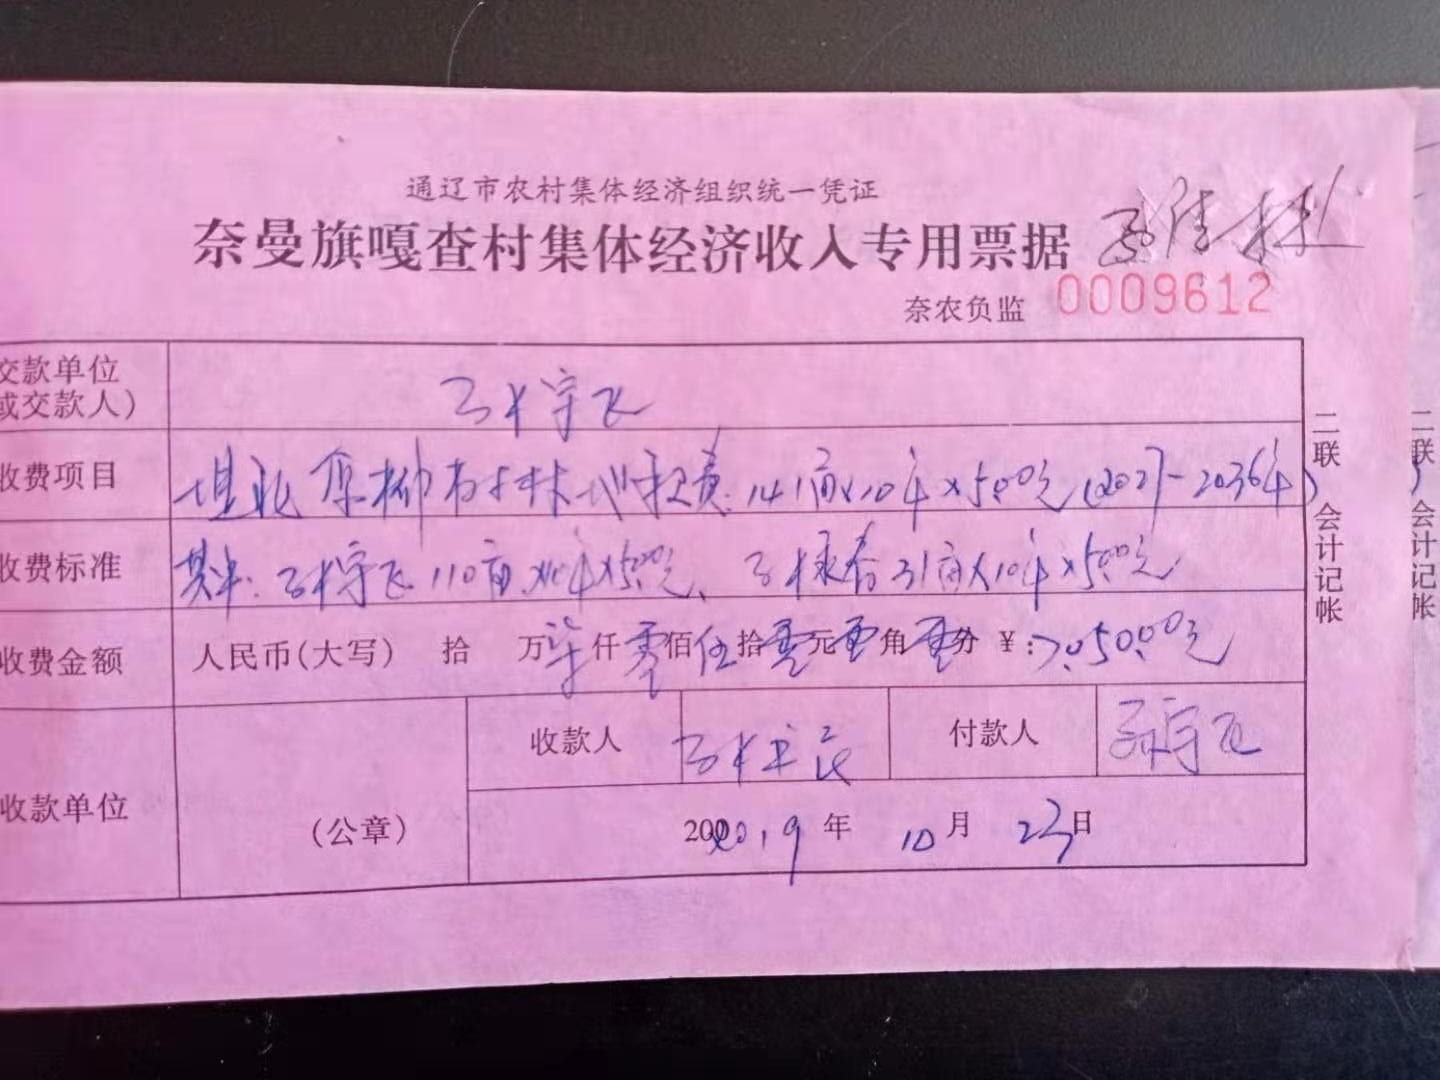 通辽市农村集体经济组织统一凭证
奈曼旗嘎查村集体经济收入专用票据
奈农负监 0009612
交款单位
或交款人)
孙宇飞
收费项目 北 林地 费 141亩×10年×5.00元(2027-2036年)
收费标准 其中:孙宇飞110亩×10年×5.00元、孙 31亩×10年×5.00元
收费金额 人民币(大写) 拾 万柒仟零佰伍拾零元零角零分 ¥:7050.00元
收款单位 (公章) 收款人 孙 付款人 孙宇飞
2002019年10月23日
二联 会计记帐
二联 会计记帐